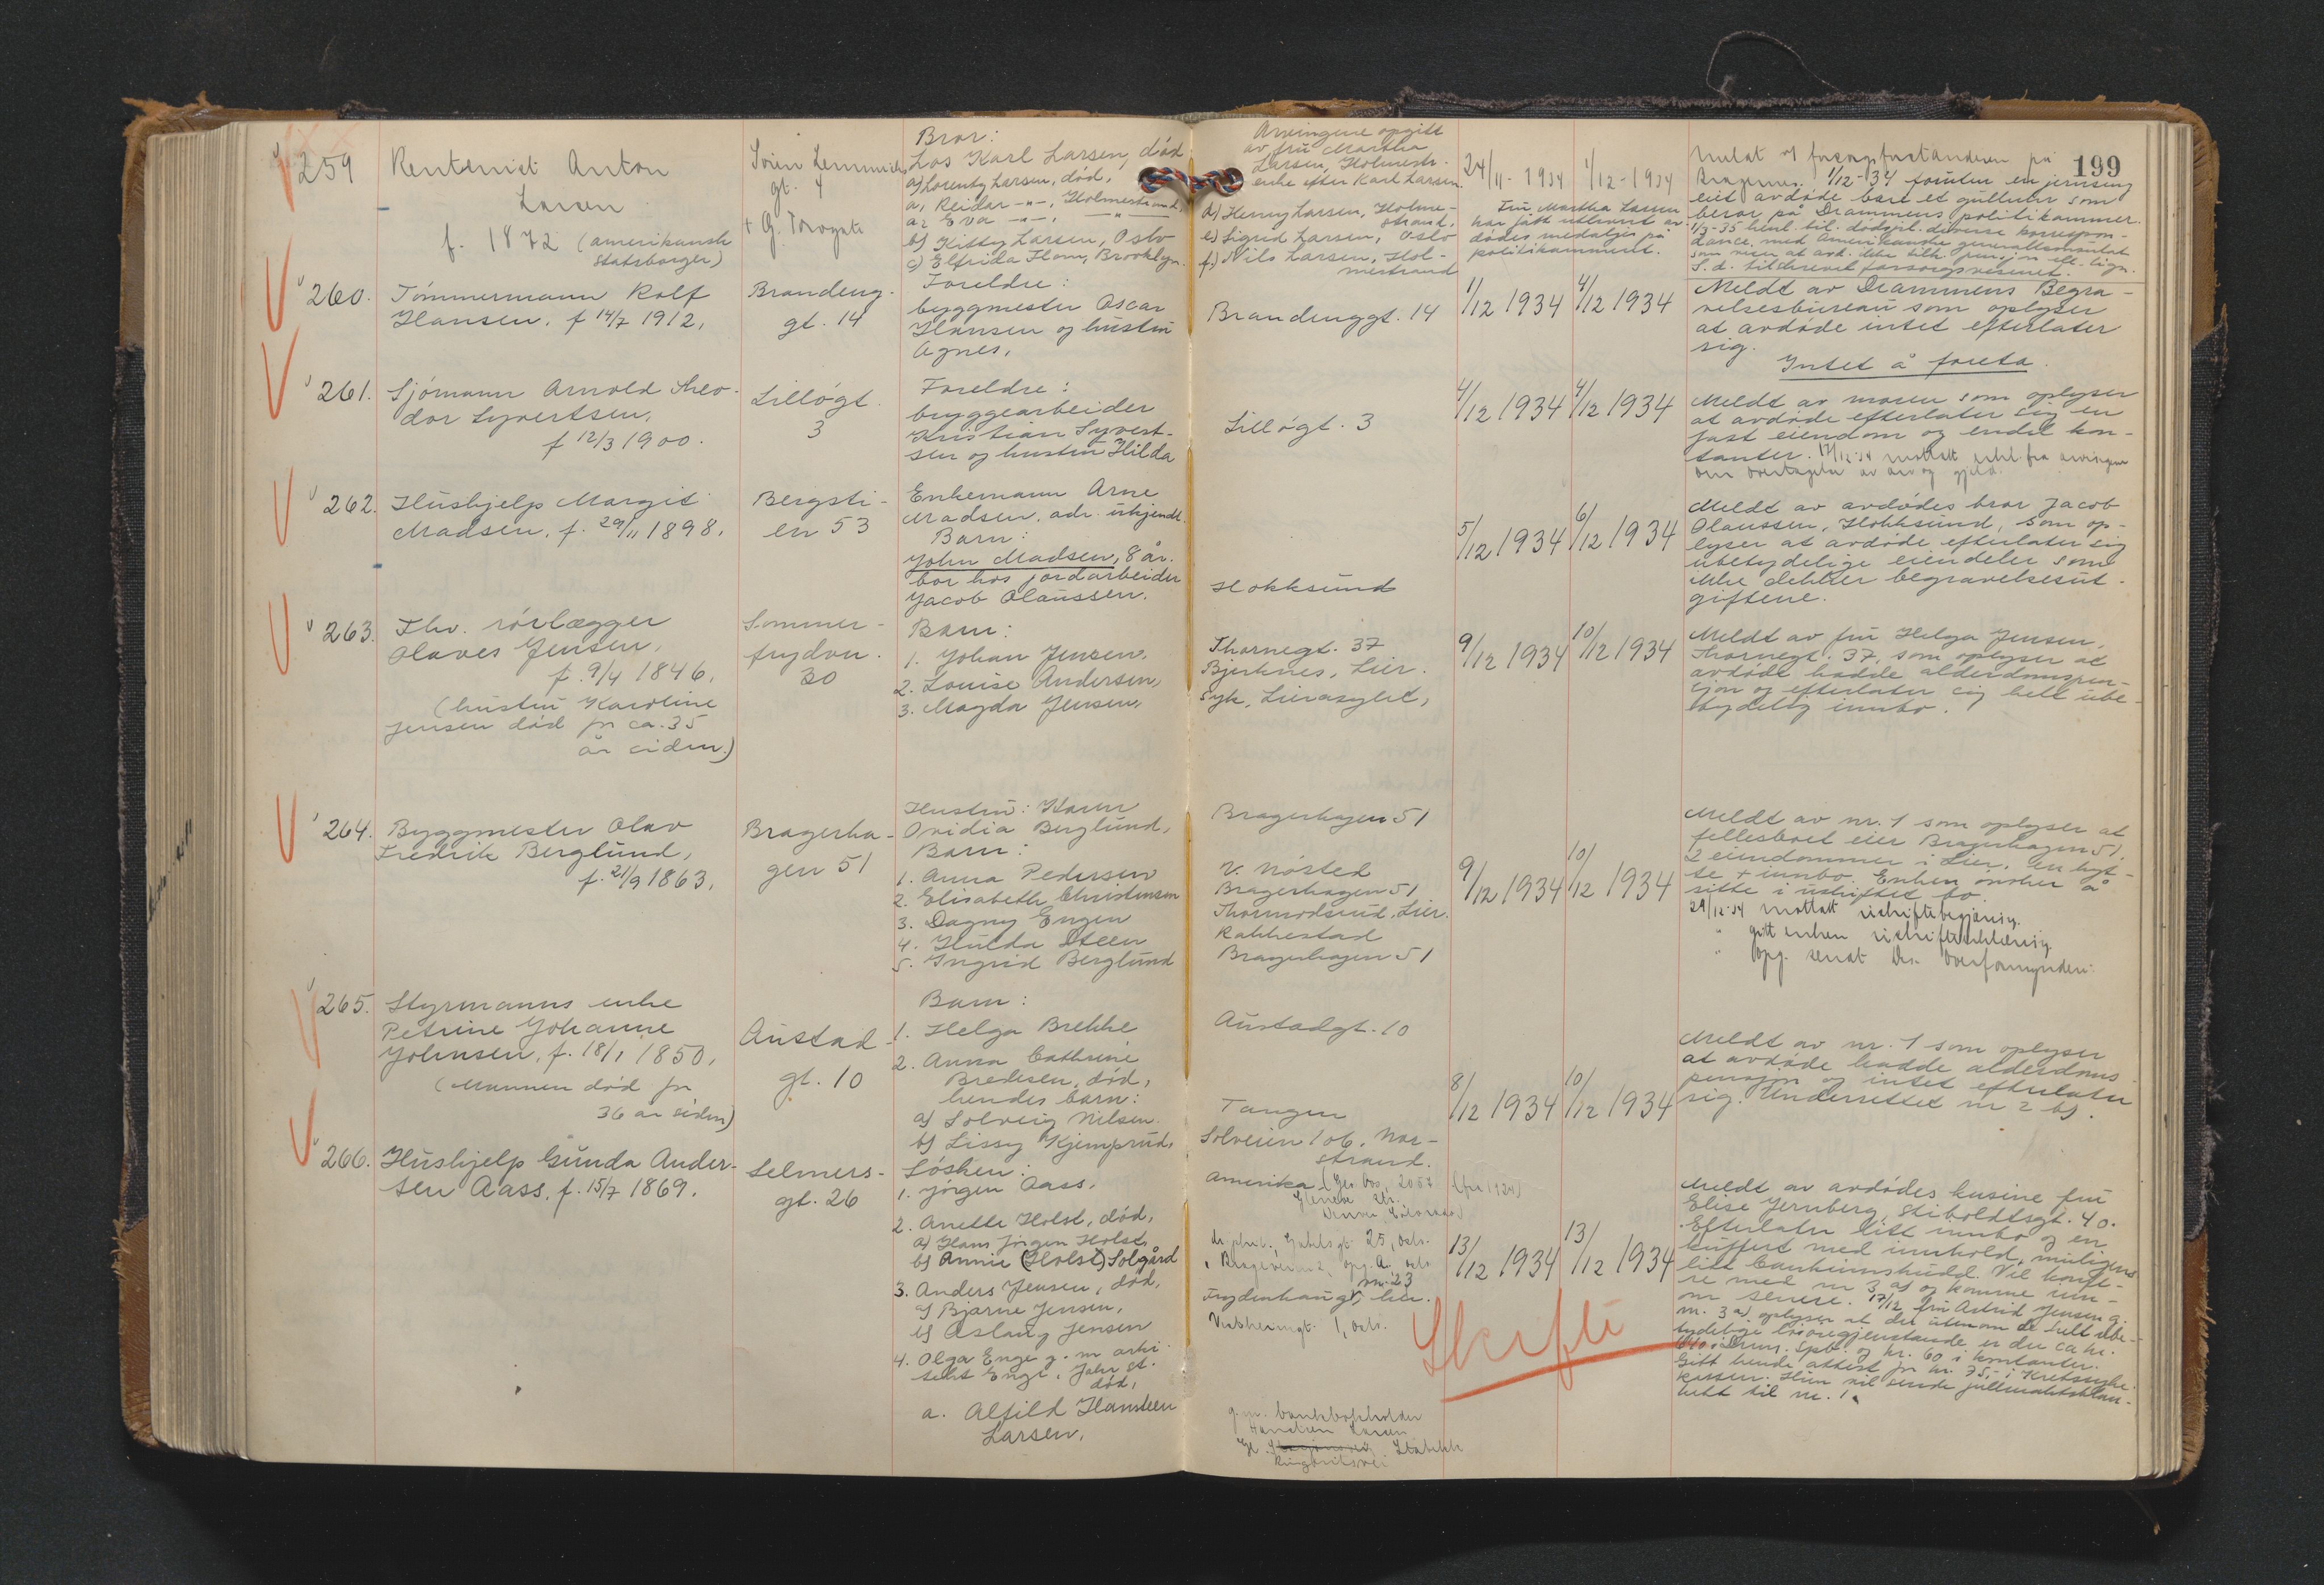 199
259
Rentenist Anton
Larsen
f. 1872 (amerikansk
statsborger)
Sören Lemmichs
gt. 4
+ G. Torvgate
Bror:
Los Karl Larsen, død
a) Lorentz Larsen, død,
a1 Reidar -"-, Holmestrand,
a2 Eva -"-, -"-
b) Kitty Larsen, Oslo
c) Elfrida Flom, Brooklyn.
Arvingene opgitt
av fru Martha
Larsen, Holmestr.
enke efter Karl Larsen.
d) Henny Larsen, Holme-
strand,
e) Sigrid Larsen, Oslo
f) Nils Larsen, Hol-
mestrand
24/11 - 1934
1/12 - 1934
Fru Martha Larsen
har fått utlevert av-
dødes medaljer på
politikammeret.
Meldt av forsorgsforstanderen på
Bragernes. 1/12-34 foruten en jernseng
eiet avdøde bare et gullur som
beror på Drammens politikammer.
1/3-35 henl. til dødspk. diverse korrespon-
dance med Amerikanske generalkonsulat
som viser at avd. ikke tilk. pensjon ell. lign.
S.d. tilskrevet forsorgsvesenet.
260.
Tömmermann Rolf
Hansen. f 14/7 1912.
Brandeng.
gt. 14
Foreldre:
byggmester Oscar
Hansen og hustru
Agnes.
Brandenggt. 14
1/12 1934
4/12 1934
Meldt av Drammens Begra-
velsesbureau som oplyser
at avdøde intet efterlater
sig.
Intet å foreta.
261.
Sjömann Arnold Theo-
dor Syvertsen,
f 12/3 1900.
Lillögt.
3
Foreldre:
bryggearbeider
Kristian Syvert-
sen og hustru Hilda
Lillögt. 3
4/12 1934
4/12 1934
Meldt av moren som oplyser
at avdøde efterlater sig en
fast eiendom og endel kon-
tanter. 17/12-34 mottatt erkl. fra arvingene
om overtagelse av arv og gjeld.
262.
Hushjelp Margit
Madsen, f. 29/11 1898.
Bergsti-
en 53
Enkemann Arne
Madsen, adr. ukjendt.
Barn:
John Madsen, 8 år.
bor hos jordarbeider
Jacob Olaussen.
Hokksund
5/12 1934
6/12 1934
Meldt av avdødes bror Jacob
Olaussen, Hokksund, som op-
lyser at avdøde efterlater sig
ubetydelige eiendeler som
ikke dekker begravelsesut-
giftene.
263.
Fhv. rörlægger
Olaves Jensen,
f. 9/4 1846.
(hustru Karoline
Jensen död for ca. 35
år siden.)
Sommer-
frydvn.
30
Barn:
1. Johan Jensen,
2. Louise Andersen,
3. Magda Jensen,
Thornegt. 37
Bjerknes, Lier.
Syk, Lierasylet,
9/12 1934
10/12 1934
Meldt av fru Helga Jensen,
Thornegt. 37, som oplyser at
avdøde hadde alderdomspen-
sjon og efterlater sig helt ube-
tydelig innbo.
264.
Byggmester Olav
Fredrik Berglund,
f. 21/9 1863.
Bragerha-
gen 51
Hustru: Karen
Ovidia Berglund,
Barn:
1. Anna Pedersen
2. Elisabeth Christensen
3. Dagny Engen
4. Hulda Steen
5. Ingrid Berglund
Bragerhagen 51
V. Nösted
Bragerhagen 51
Thormodsrud, Lier.
Rakkestad
Bragerhagen 51
9/12 1934
10/12 1934
Meldt av nr. 1 som oplyser at
fellesboet eier Bragerhagen 51,
2 eiendommer i Lier, en hyt-
te + innbo. Enken önsker å
sitte i uskiftet bo.
29/12-34 mottatt uskiftebegjæring.
" gitt enken uskifteerklæring.
" Opg. sendt Dr. Overformynderi.
265.
Styrmanns enke
Petrine Johanne
Johnsen, f. 18/1 1850.
(Mannen död for
36 år siden)
Austad-
gt. 10
Barn:
1. Helga Brekke
2. Anna Cathrine
Bredesen, död,
hendes barn:
a) Solveig Nilsen.
b) Lissy Kjemprud.
Austadgt. 10
Tangen
Solveien 106. Nor-
strand.
8/12 1934
10/12 1934
Meldt av nr. 1 som oplyser
at avdøde hadde alderdoms
pensjon og intet efterlater
sig. Underrettet nr 2 b).
266.
Hushjelp Gunda Ander-
sen Aass, f. 15/7 1869.
Selmers-
gt. 26
Sösken:
1. Jörgen Aass.
2. Anette Holst, död,
a) Hans Jörgen Holst,
b) Annie (Holst) Solgård
3. Anders Jensen, död,
a) Bjarne Jensen,
b) Aslaug Jensen
4. Olga Enge g. m arki-
tekt Enge,
död,
a. Alfild Hansteen
Larsen.
Amerika (Ges. box, 2057 (før 1924)
25, Oslo.
nr. 23
Frydenhaug, Lier.
1, Oslo.
g. m. bankbokholder
Hansteen Larsen
Stabekk
Ringeriksvei
13/12 1934
13/12 1934
Skifte
Meldt av avdødes kusine fru
Elise Jernberg, Stiboldtsgt. 40.
Efterlater litt innbo og en
kuffert med innhold, muligens
litt bankinnskudd. Vil konfe-
re med nr 3 a) og komme inn-
om senere. 17/12 fru Astrid Jensen g.
m. 3 a) oplyser at der utenom de helt ube-
tydelige lösöregjenstande er der ca kr.
640 i Dram. Spb. og kr. 60 i kontanter.
Gitt hende attest for kr. 75,- i Kretssyke-
kassen. Hun vil sende fullmaktsblan-
kett til nr. 1.